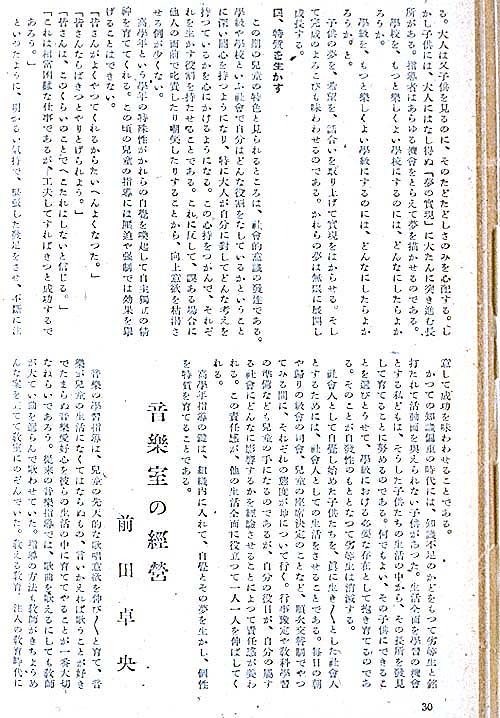 る。大人は父子を見るのに、そのたどたどしさのみを心配する。し
かし子供には、大人にはなし得ぬ「夢の実現」に大たんに突き進む長
所がある。指導者はあらゆる機會をとらえて夢を描かせるのである。
學校を、もつと楽しくよい學校にするのには、どんなにしたらよか
ろうか。
學級を、もつと楽しくよい學級にするのには、どんなにしたらよか
ろうか。と。
子供の夢を、希望を、話合いを取り上げて實現をはからせる。そし
て完成のよろこびも味わわせるのである。かれらの夢は無限に展開し
成長する。
四、特質を生かす
この期の兒童の特色と見られるところは、社會的意識の發達である。
學級や學校といふ社會で自分はどんな役割をなしているかということ
に深い關心を持つようになり、特に大人が自分に對してどんな考えを
持つているかを心にかけるようになる。この心持をつかんで、それぞ
れを生かす役割を持たせることである。これに反して、誤ある場合に
他人の面前で叱責したり嘲笑したりすることから、向上意欲を枯渇さ
せる例が少くない。
高學年という學年の特殊性がかれらの自覺を喚起して自主獨立の精
神を育ててくれる。この頃の兒童の指導には壓迫や強制では効果を擧
げることはできない。
「皆さんがよくやつてくれるからたいへんよくなつた。」
「皆さんならばきつとやりとげられよう。」
「皆さんは、このくらいのことでへこたれはしないと信じる。」
「これは相當困難な仕事であるが、工夫してすればきつと成功するで
あろう。」
といつたように、明かるい氣持で、緊張した發足をさせ、不斷に注
意して成功を味わわせることである。
かつての知識偏重の時代には、知識不足のかどをもつて劣等生と銘
打たれて活動面を與えられない子供があつた。生活全面を學習の機會
とする私どもは、そうした子供たちの生活の中から、その長所を發見
して育てることに努めるのである。何でもよい、その子供にできるこ
とを選びとうせて、學級における必要な存在として抱き育てるのであ
る。そのことが自發性のもととなつて劣等生は消滅する。
社會人として自覺し始めた子供たちを、眞に生き〳〵とした社會人
とするためには、社會人としての生活をさせることである。毎日の朝
や歸りの級會の司會、兒童の座席決定のことなど、順次交替制でやつ
てみる間に、それぞれの態度が地について行く。行事豫定や教科學習
の準備なども兒童の手になるのであるが、自分の役目が、自分の屬す
る社會にどんなに影響するかを經驗させることによつて責任感が養わ
れる。この責任感が、他の生活全面に役立つて一人一人を伸ばしてく
れる。
高學年指導の鍵は、組織内に入れて、自覺とその夢を生かし、個性
を特質を育てることである。
音樂室の經營
前田卓央
音樂の學習指導は、兒童の先天的な歌唱意欲を伸び〳〵と育て、音
樂が兒童の生活になくてはならぬもの、言いかえれば歌うことが好き
でたまらぬ音樂愛好心を彼らの生活の中に育ててやることが一番大切
なねらいであろう。從來の音樂指導では、歌曲を教えるにしても教師
が大てい曲を選らんで歌わせていた。指導の方法も教師がきちようめ
んな案を立てて教室にのぞんでいた。教える教育、注入の教育時代に
30